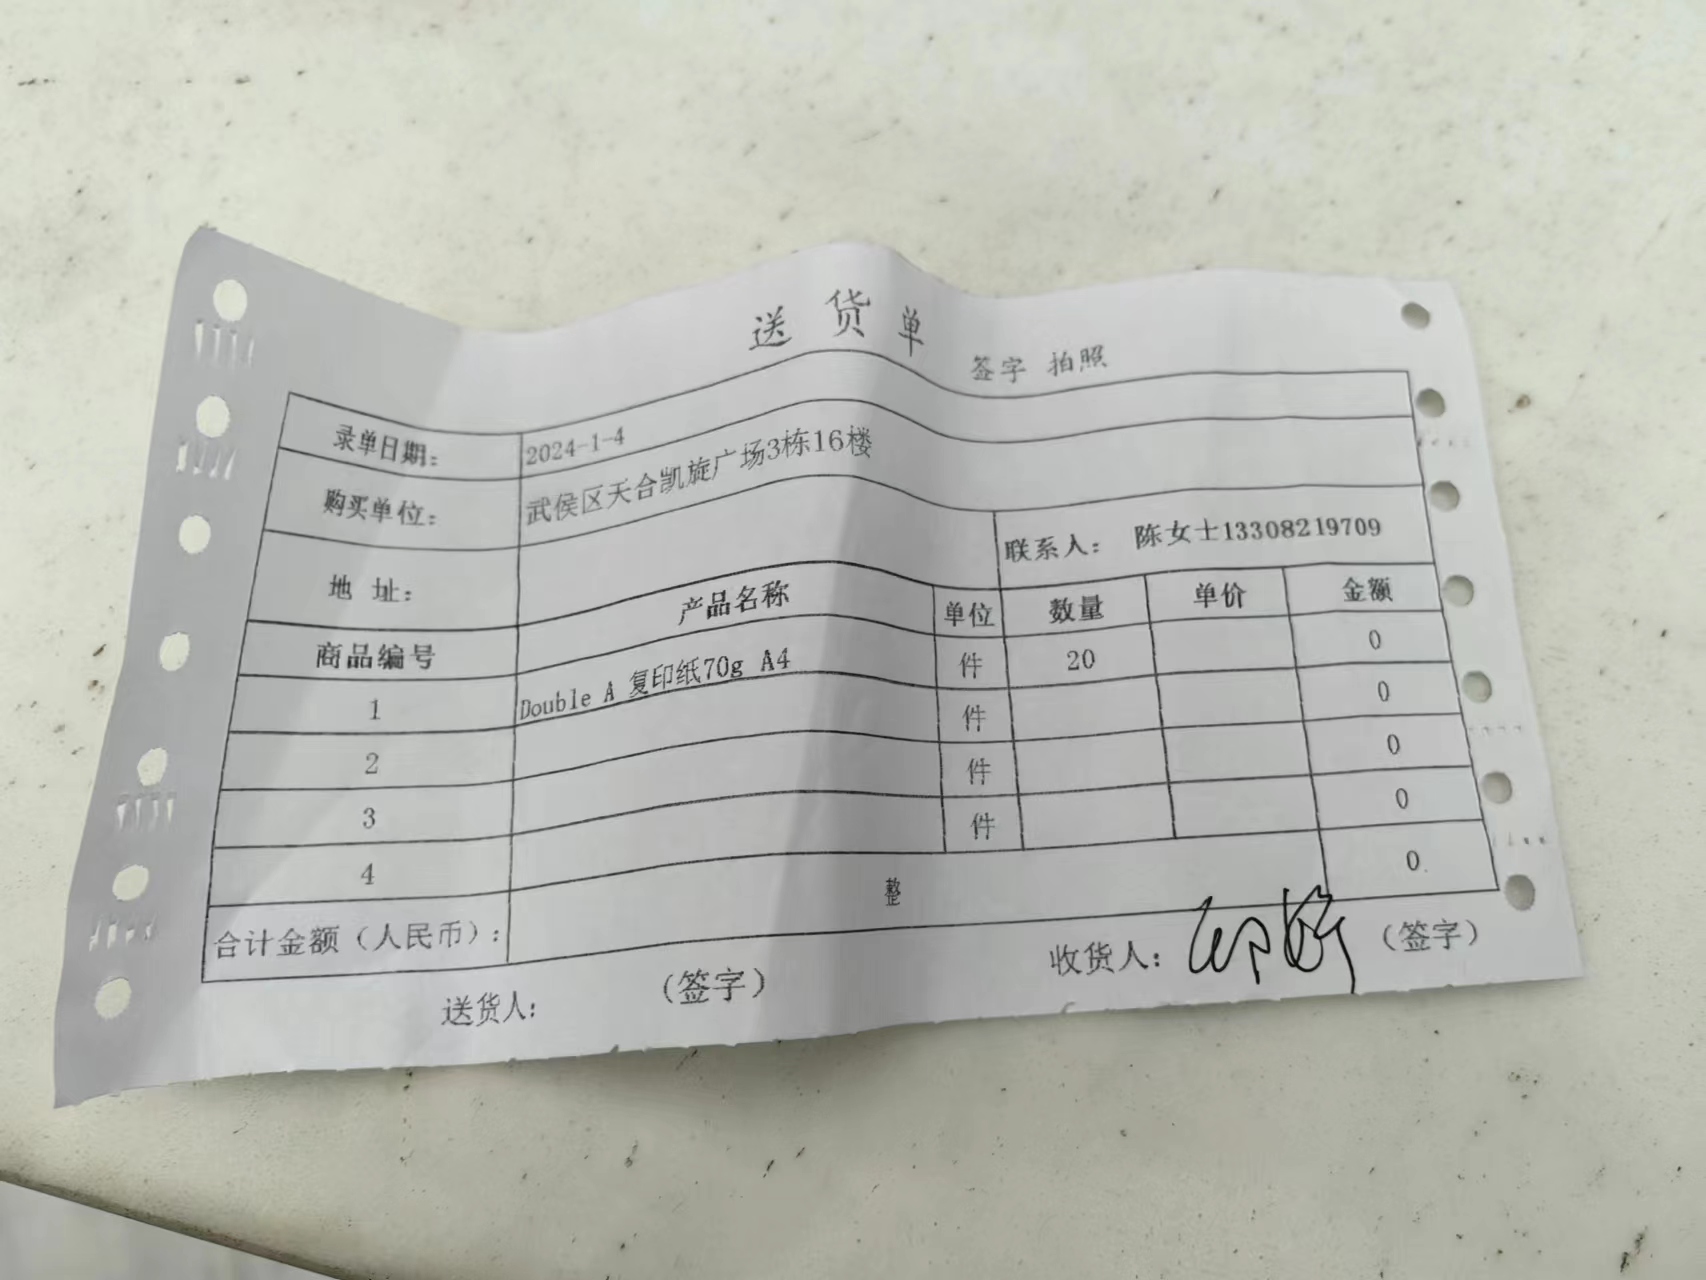 送 货 单
签字 拍照
录单日期: 2024-1-4
购买单位: 武侯区天合凯旋广场3栋16楼
地 址: 联系人: 陈女士13308219709
商品编号 产品名称 单位 数量 单价 金额
1 Double A 复印纸70g A4 件 20 0
2 件 0
3 件 0
4 件 0
合计金额(人民币): 整 0
送货人: (签字) 收货人: (签字)